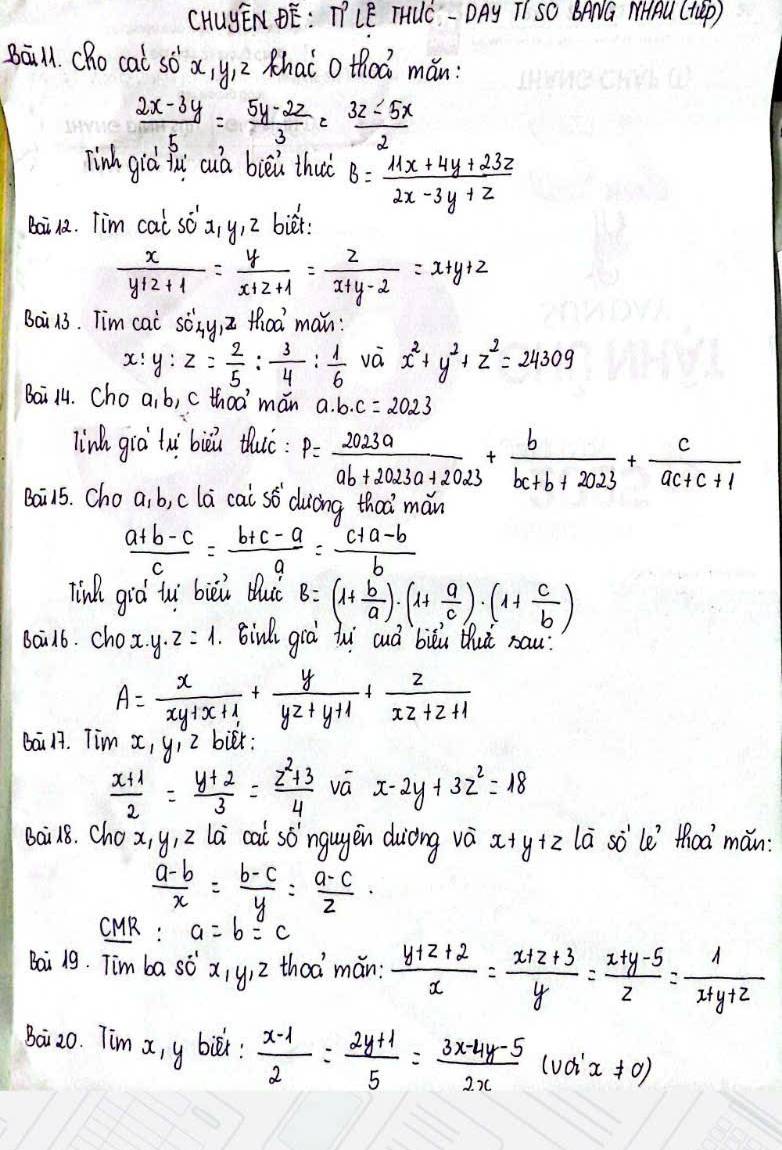 CHUYÊN ĐỀ: TỈ LỆ THỨC - DÃY TỈ SỐ BẰNG NHAU (tiếp)
Bài 11. Cho các số x, y, z khác 0 thoả mãn:
(2x-3y)/5 = (5y-2z)/3 = (3z-5x)/2
Tính giá trị của biểu thức B = (11x+4y+23z)/(2x-3y+z)
Bài 12. Tìm các số x, y, z biết:
x/(y+z+1) = y/(x+z+1) = z/(x+y-2) = x+y+z
Bài 13. Tìm các số x, y, z thoả mãn:
x : y : z = 2/5 : 3/4 : 1/6 và x² + y² + z² = 24309
Bài 14. Cho a, b, c thoả mãn a.b.c = 2023
Tính giá trị biểu thức: P = 2023a/(ab+2023a+2023) + b/(bc+b+2023) + c/(ac+c+1)
Bài 15. Cho a, b, c là các số dương thoả mãn
(a+b-c)/c = (b+c-a)/a = (c+a-b)/b
Tính giá trị biểu thức B = (1+b/a).(1+a/c).(1+c/b)
Bài 16. Cho x.y.z = 1. Tính giá trị của biểu thức sau:
A = x/(xy+x+1) + y/(yz+y+1) + z/(xz+z+1)
Bài 17. Tìm x, y, z biết:
(x+1)/2 = (y+2)/3 = (z²+3)/4 và x-2y+3z² = 18
Bài 18. Cho x, y, z là các số nguyên dương và x+y+z là số lẻ thoả mãn:
(a-b)/x = (b-c)/y = (a-c)/z.
CMR : a = b = c
Bài 19. Tìm ba số x, y, z thoả mãn: (y+z+2)/x = (x+z+3)/y = (x+y-5)/z = 1/(x+y+z)
Bài 20. Tìm x, y biết: (x-1)/2 = (2y+1)/5 = (3x-4y-5)/2x (với x ≠ 0)